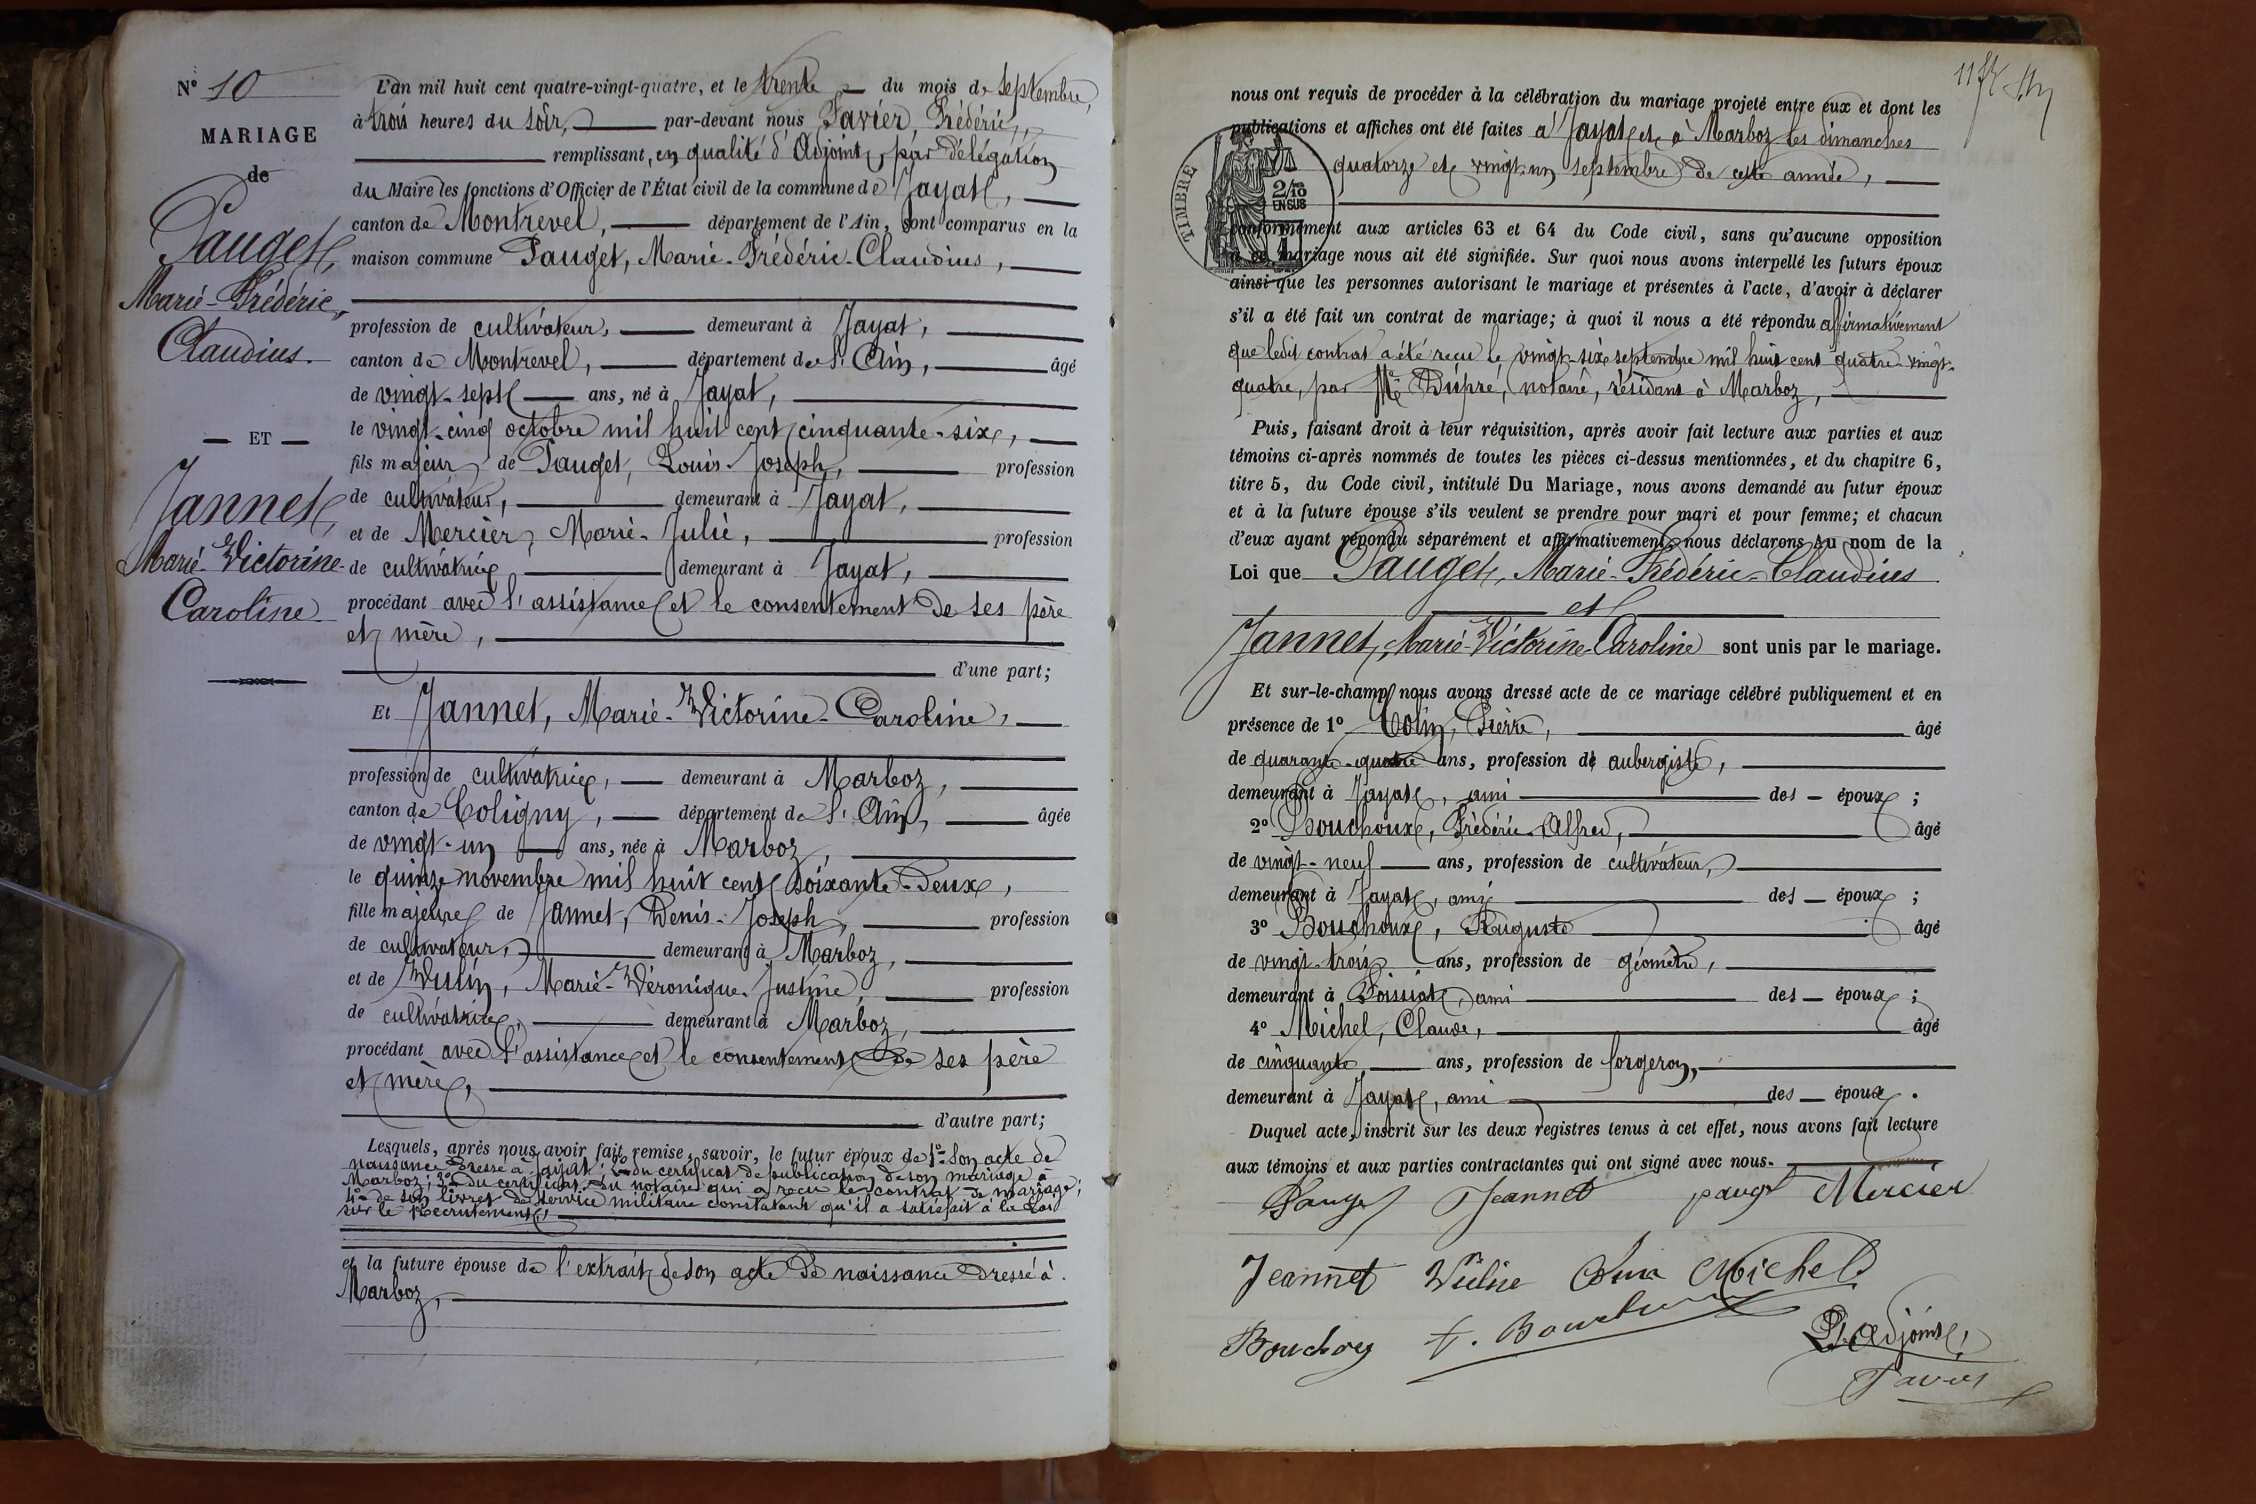 N° 10
MARIAGE
de
Pauget,
Marie-Frédéric-
Claudius.
— ET —
Jannet,
Marie-Victorine-
Caroline
L'an mil huit cent quatre-vingt-quatre, et le trente — du mois de septembre,
à trois heures du soir, — par-devant nous Favier, Frédéric,
remplissant, en qualité d'Adjoint, par délégation
du Maire les fonctions d'Officier de l'État civil de la commune de Jayat,
canton de Montrevel, — département de l'Ain, sont comparus en la
maison commune Pauget, Marie-Frédéric-Claudius,
profession de cultivateur, — demeurant à Jayat,
canton de Montrevel, — département de l'Ain, — âgé
de vingt-sept — ans, né à Jayat,
le vingt-cinq octobre mil huit cent cinquante-six,
fils majeur de Pauget, Louis-Joseph, — profession
de cultivateur, — demeurant à Jayat,
et de Mercier, Marie-Julie, — profession
de cultivatrice — demeurant à Jayat,
procédant avec l'assistance et le consentement de ses père
et mère,
d'une part;
Et Jannet, Marie-Victorine-Caroline,
profession de cultivatrice, — demeurant à Marboz,
canton de Coligny, — département de l'Ain, — âgée
de vingt-un — ans, née à Marboz,
le quinze novembre mil huit cent soixante-deux,
fille majeure de Jannet, Denis-Joseph, — profession
de cultivateur, — demeurant à Marboz,
et de Vulin, Marie-Véronique-Justine, — profession
de cultivatrice, — demeurant à Marboz,
procédant avec l'assistance et le consentement de ses père
et mère,
d'autre part;
Lesquels, après nous avoir fait remise, savoir, le futur époux de 1° son acte de
naissance dressé à Jayat; 2° du certificat de publication de son mariage à
Marboz; 3° du certificat du notaire qui a reçu le contrat de mariage;
4° de son livret de service militaire constatant qu'il a satisfait à la Loi
sur le Recrutement,
et la future épouse de l'extrait de son acte de naissance dressé à
Marboz,
nous ont requis de procéder à la célébration du mariage projeté entre eux et dont les
publications et affiches ont été faites à Jayat et à Marboz les dimanches
quatorze et vingt-un septembre de cette année,
TIMBRE
2/10
EN SUS
conformément aux articles 63 et 64 du Code civil, sans qu'aucune opposition
à ce mariage nous ait été signifiée. Sur quoi nous avons interpellé les futurs époux
ainsi que les personnes autorisant le mariage et présentes à l'acte, d'avoir à déclarer
s'il a été fait un contrat de mariage; à quoi il nous a été répondu affirmativement
que ledit contrat a été reçu le vingt-six septembre mil huit cent quatre-vingt-
quatre, par Me Dupré, notaire, résidant à Marboz,
Puis, faisant droit à leur réquisition, après avoir fait lecture aux parties et aux
témoins ci-après nommés de toutes les pièces ci-dessus mentionnées, et du chapitre 6,
titre 5, du Code civil, intitulé Du Mariage, nous avons demandé au futur époux
et à la future épouse s'ils veulent se prendre pour mari et pour femme; et chacun
d'eux ayant répondu séparément et affirmativement, nous déclarons au nom de la
Loi que Pauget, Marie-Frédéric-Claudius
et
Jannet, Marie-Victorine-Caroline sont unis par le mariage.
Et sur-le-champ nous avons dressé acte de ce mariage célébré publiquement et en
présence de 1° Colin, Pierre, — âgé
de quarante-quatre ans, profession de aubergiste,
demeurant à Jayat, ami — des — époux;
2° Bouchoux, Frédéric-Alfred, — âgé
de vingt-neuf — ans, profession de cultivateur,
demeurant à Jayat, ami — des — époux;
3° Bouchoux, Auguste — âgé
de vingt-trois ans, profession de géomètre,
demeurant à Foissiat, ami — des — époux;
4° Michel, Claude, — âgé
de cinquante — ans, profession de forgeron,
demeurant à Jayat, ami — des — époux.
Duquel acte, inscrit sur les deux registres tenus à cet effet, nous avons fait lecture
aux témoins et aux parties contractantes qui ont signé avec nous.
Pauget Jeannet pauget Mercier
Jeannet Vuline Michel
Bouchoux
L'Adjoint,
Favier